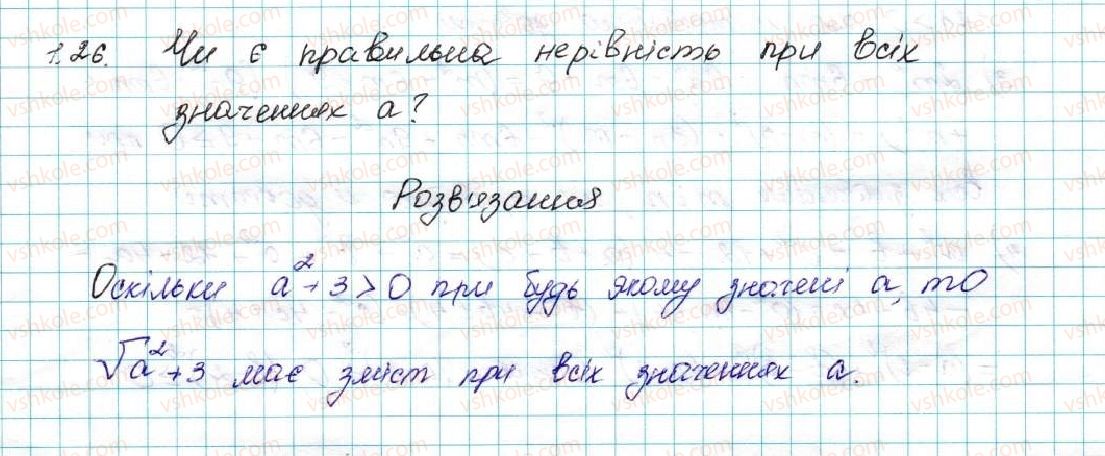 1.26. Чи є правильна нерівність при всіх
значеннях a?
Розв'язання
Оскільки a²+3>0 при будь якому значені a, то
√a²+3 має зміст при всіх значеннях a.